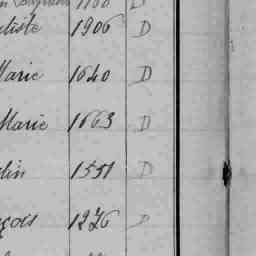 tiste 1906 D
Marie 1640 D
Marie 1663 D
lin 1551 D
çois 1276 D